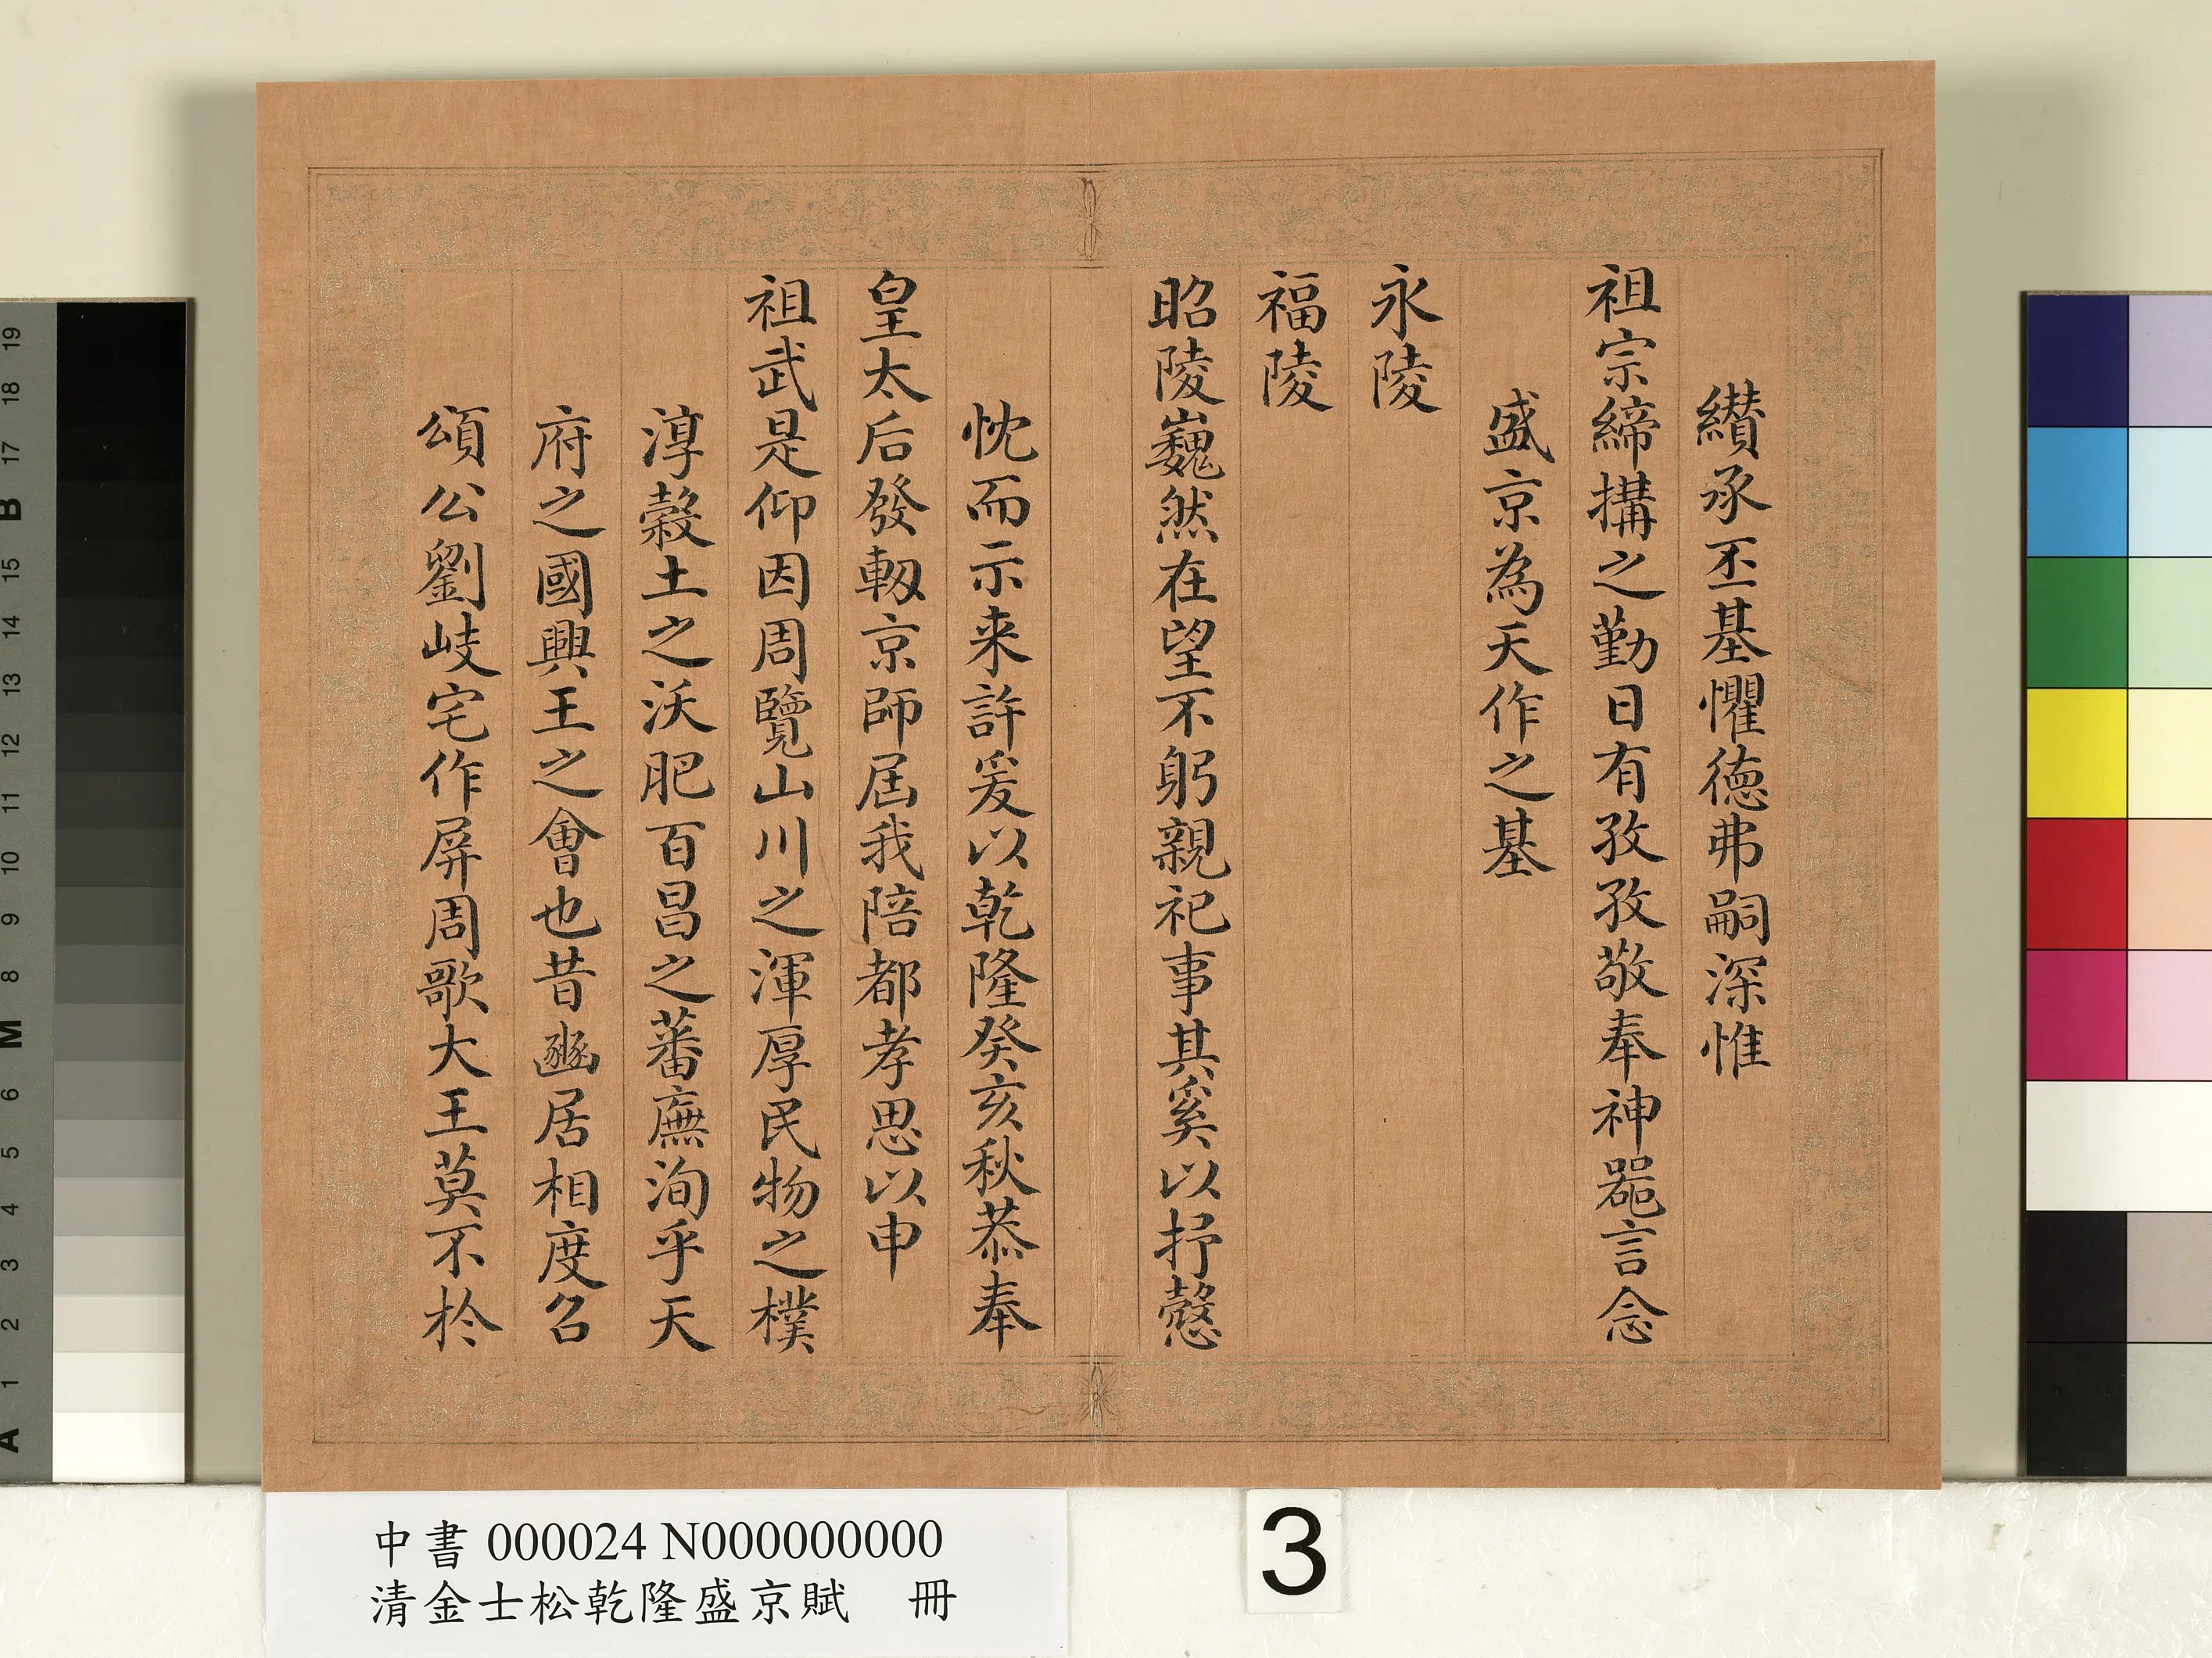 纉承丕基懼德弗嗣深惟
祖宗締搆之勤日有孜孜敬奉神噐言念
盛京為天作之基
永陵
福陵
昭陵巍然在望不躬親祀事其奚以抒慤
忱而示来許爰以乾隆癸亥秋恭奉
皇太后發軔京師屆我陪都孝思以申
祖武是仰因周覽山川之渾厚民物之樸
淳穀土之沃肥百昌之蕃廡洵乎天
府之國興王之會也昔豳居相度召
頌公劉岐宅作屏周歌大王莫不於
中書 000024 N000000000
清金士松乾隆盛京賦 冊
3
19
18
17
B
16
15
14
13
12
11
10
9
8
M
7
6
5
4
3
2
1
A